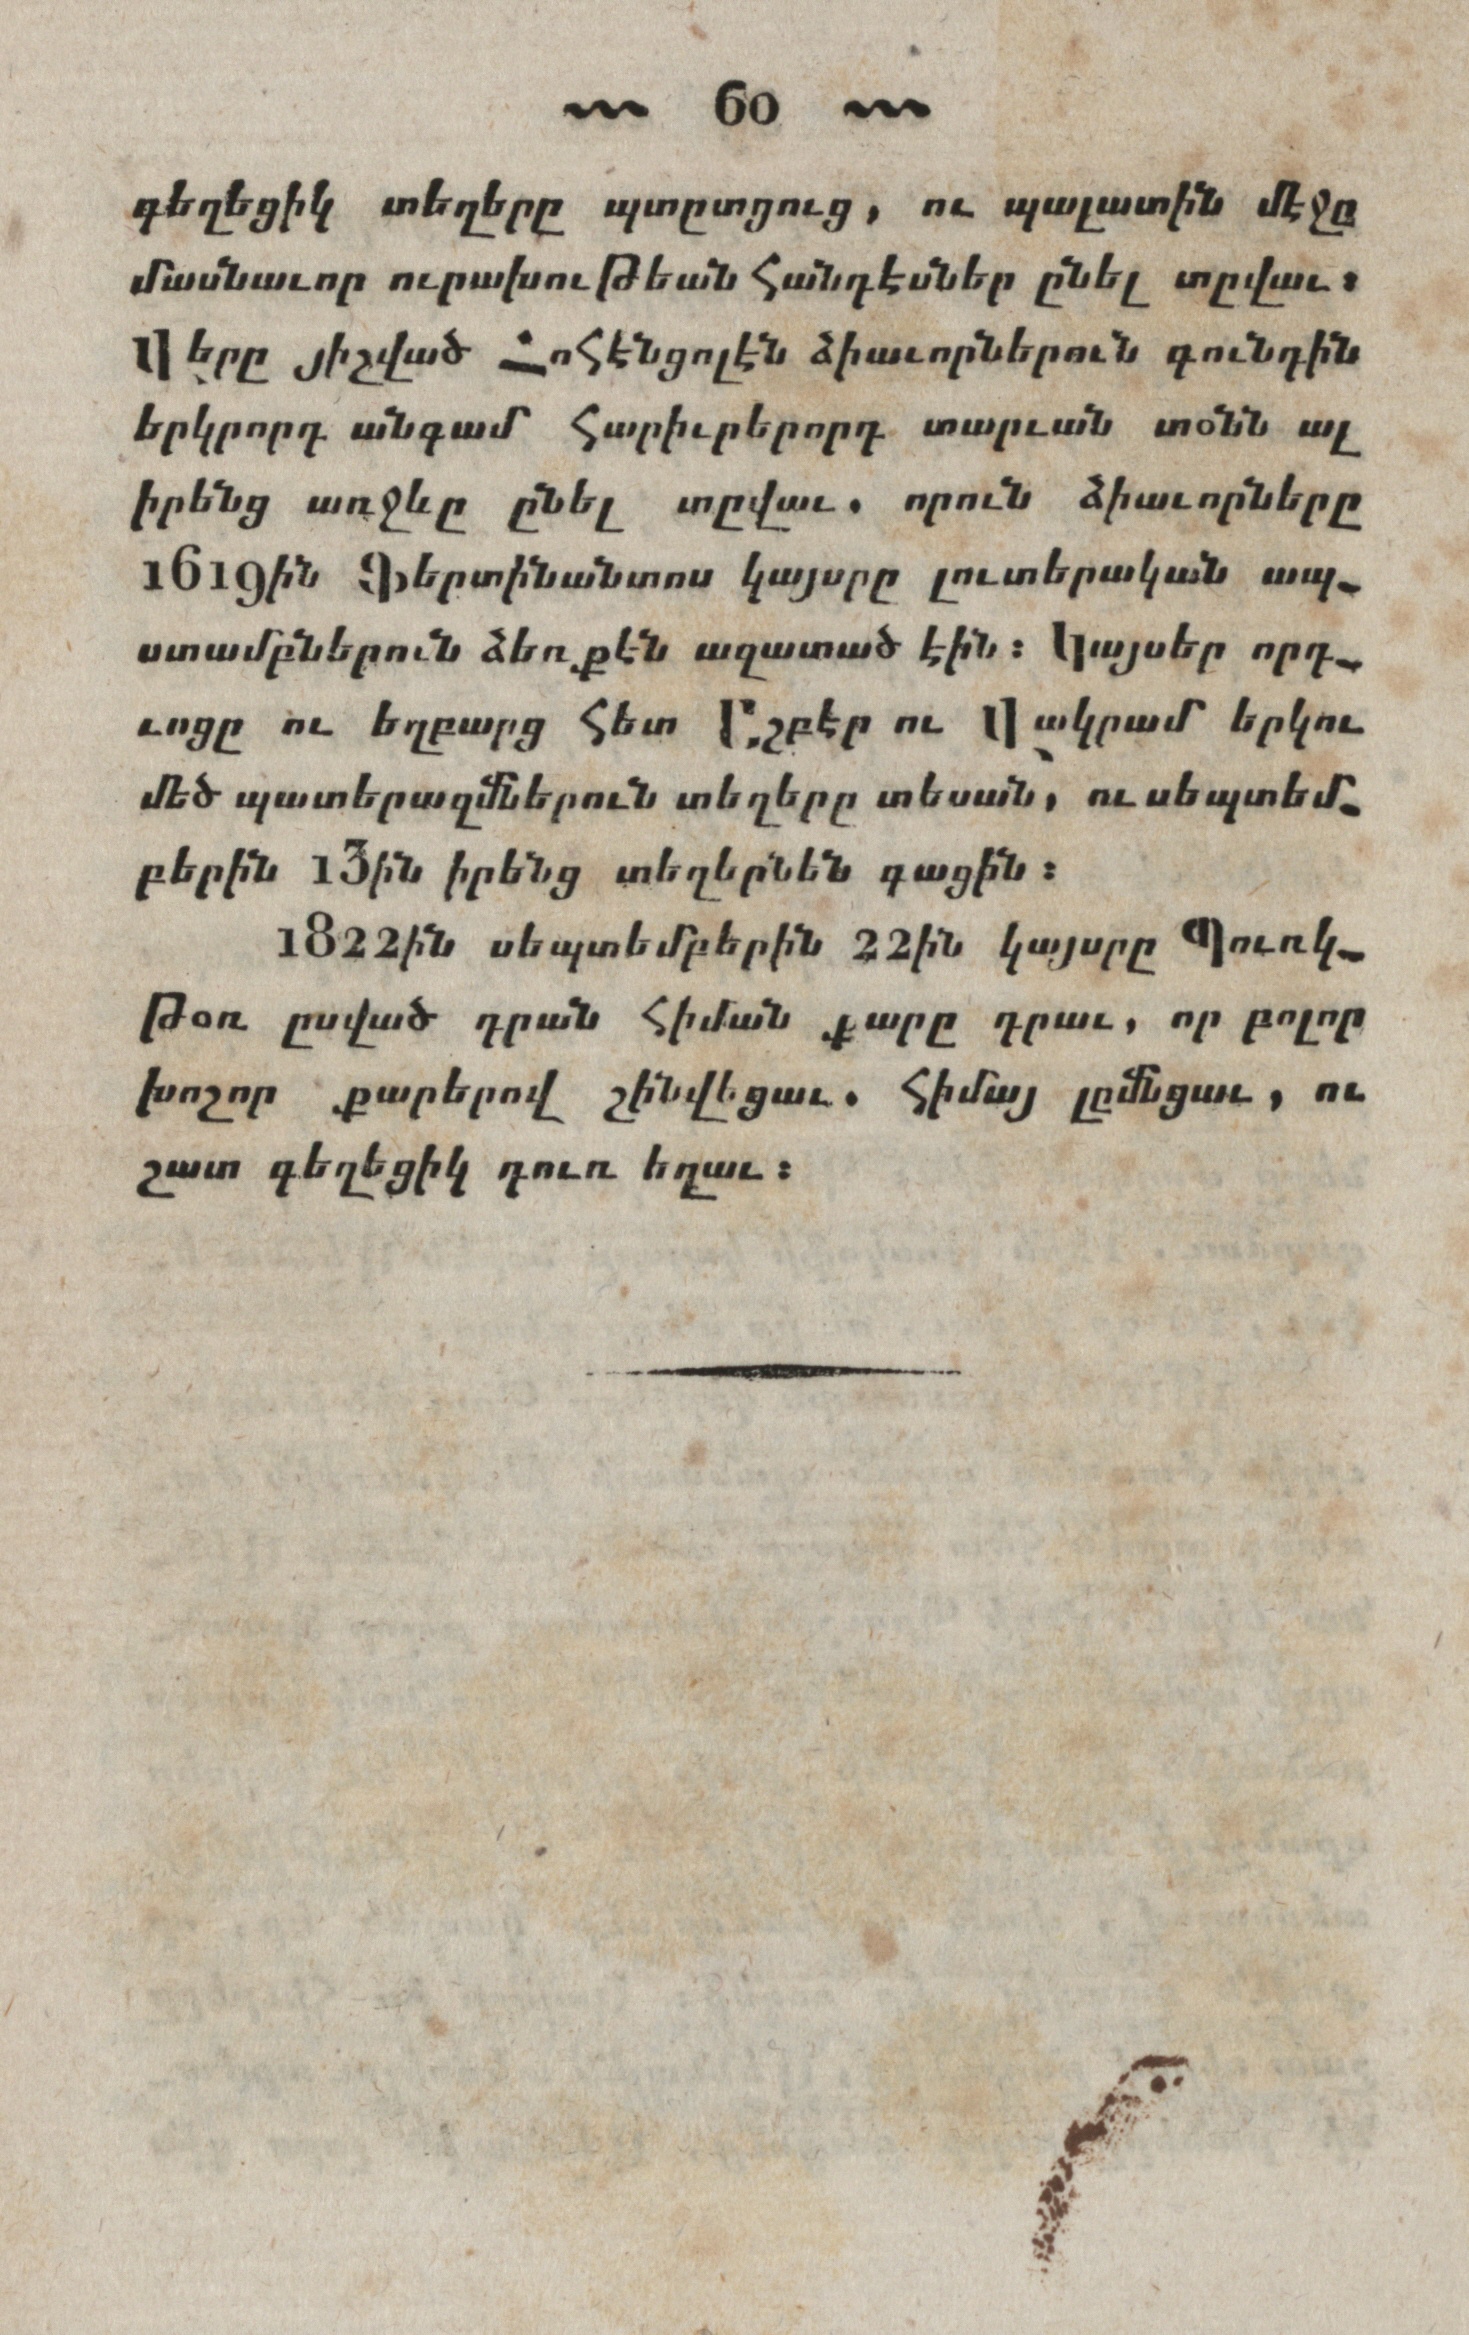 60
գեղեցիկ տեղերը պտըտցուց, ու պալատին մէջը
մասնաւոր ուրախութեան հանդէսներ ընել տըվաւ։
Վերը յիշված Հոհէնցոլէն ձիաւորներուն գունդին
երկրորդ անգամ հարիւրերորդ տարւան տօնն ալ
իրենց առջևը ընել տըվաւ. որուն ձիաւորները
1619ին Ֆերտինանտոս կայսրը լուտերական ապ-
ստամբներուն ձեռքէն ազատած էին։ Կայսեր որդ-
ւոցը ու եղբարց հետ Ըշբէր ու Վակրամ երկու
մեծ պատերազմներուն տեղերը տեսան, ու սեպտեմ-
բերին 13ին իրենց տեղերնեն գացին։
1822ին սեպտեմբերին 22ին կայսրը Պուռկ-
թօռ ըսված դրան հիման քարը դրաւ, որ բոլոր
խոշոր քարերով շինվեցաւ. հիմայ լըմնցաւ, ու
շատ գեղեցիկ դուռ եղաւ։